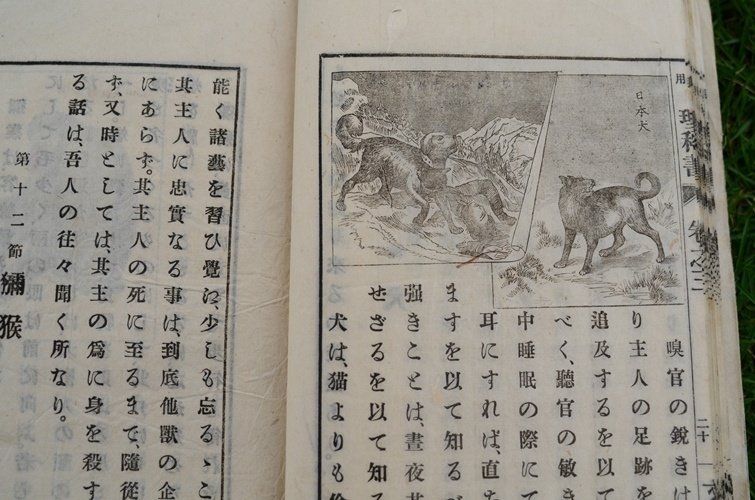 日本犬
理科書
卷之三
嗅官の銳きは
り主人の足跡を
追及するを以て
べく、聽官の敏き
中睡眠の際にて
耳にすれば、直ち
ますを以て知るべ
强きことは、晝夜其
せざるを以て知る
犬は、猫よりも
二十
能く諸藝を習ひ覺ゑ、少しも忘るゝこ
其主人に忠實なる事は、到底他獸の企
にあらず。其主人の死に至るまで、隨從
ず、又時としては、其主の爲に身を殺す
る話は、吾人の往々聞く所なり。
第十二節 獼猴